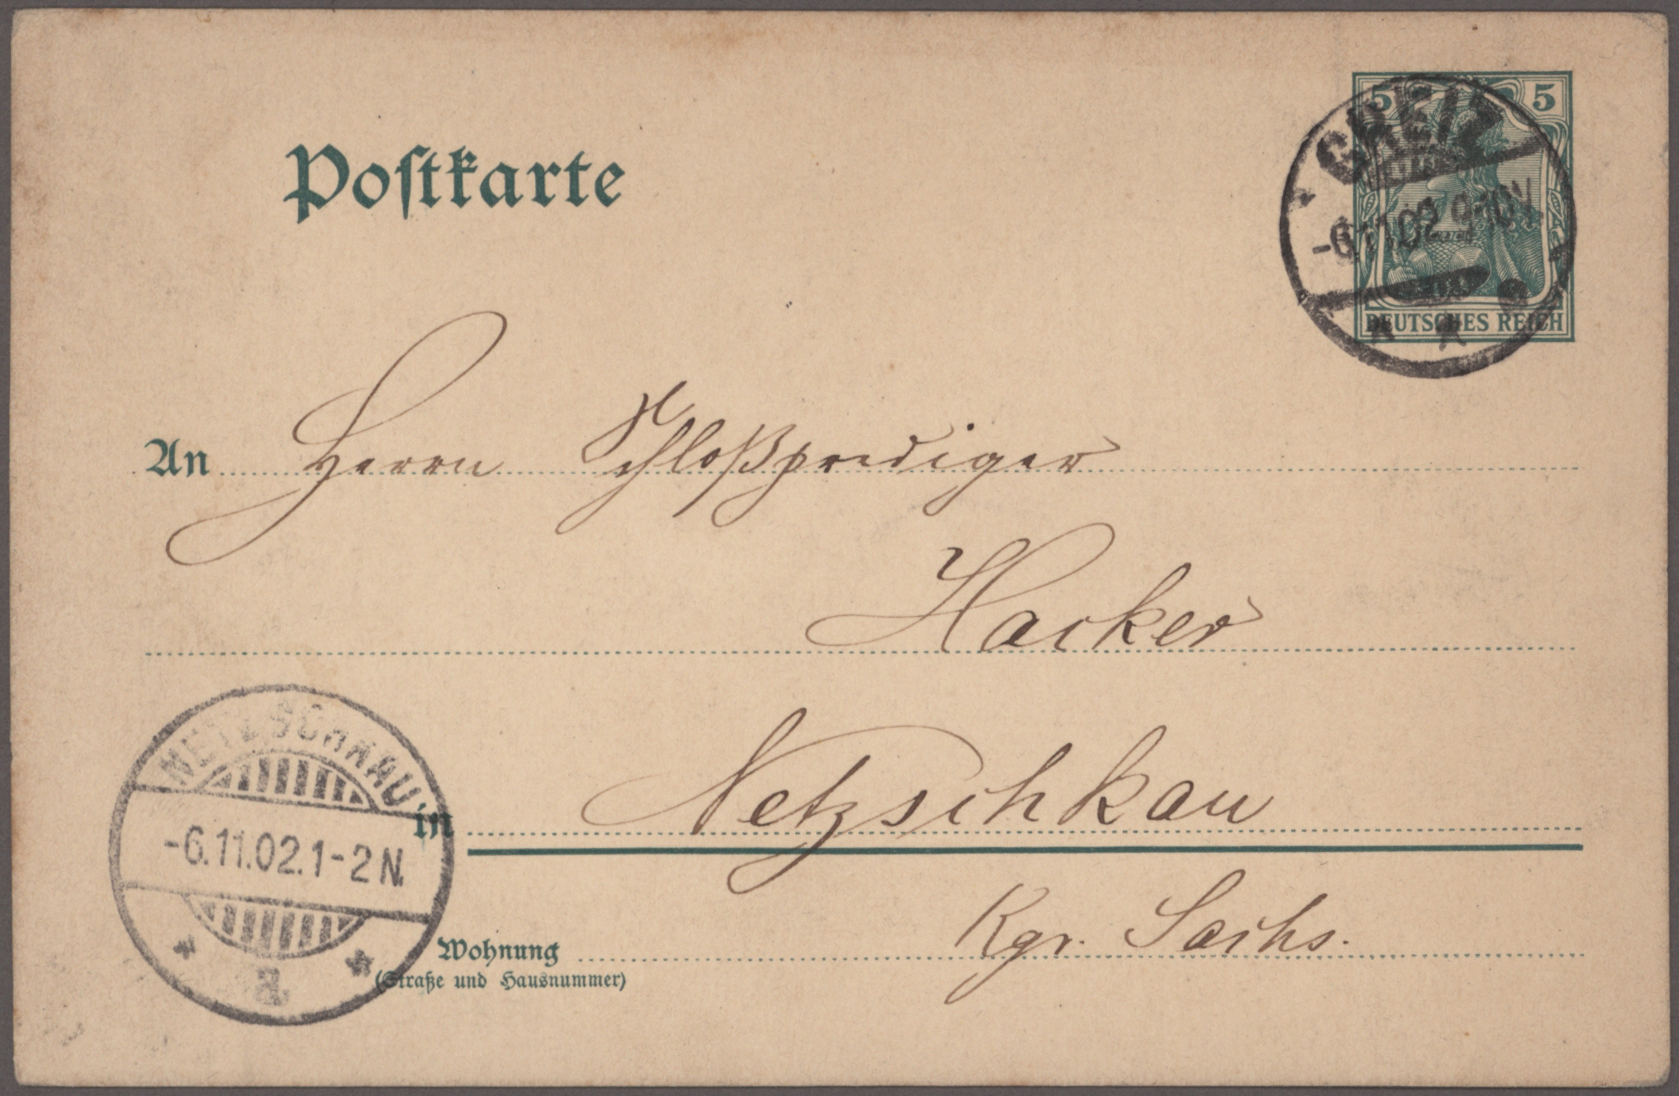 Postkarte
5 5
DEUTSCHES REICH
GREIZ
-6.11.02.9-10V.
An Herrn Schloßprediger
Hacker
in Netzschkau
Kgr. Sachs.
Wohnung
(Straße und Hausnummer)
NETZSCHKAU
-6.11.02.1-2N.